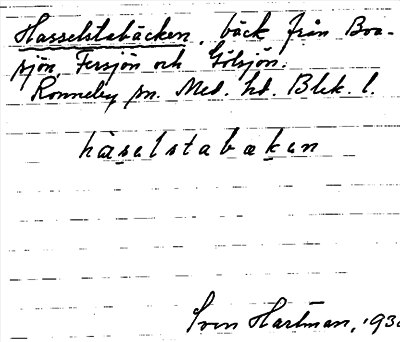 Hasselstabäcken, bäck från Boa-
sjön, Fersjön och Gölsjön.
Ronneby sn. Med. hd. Blek. l.
hàselstabækan
Sven Hartman, 193